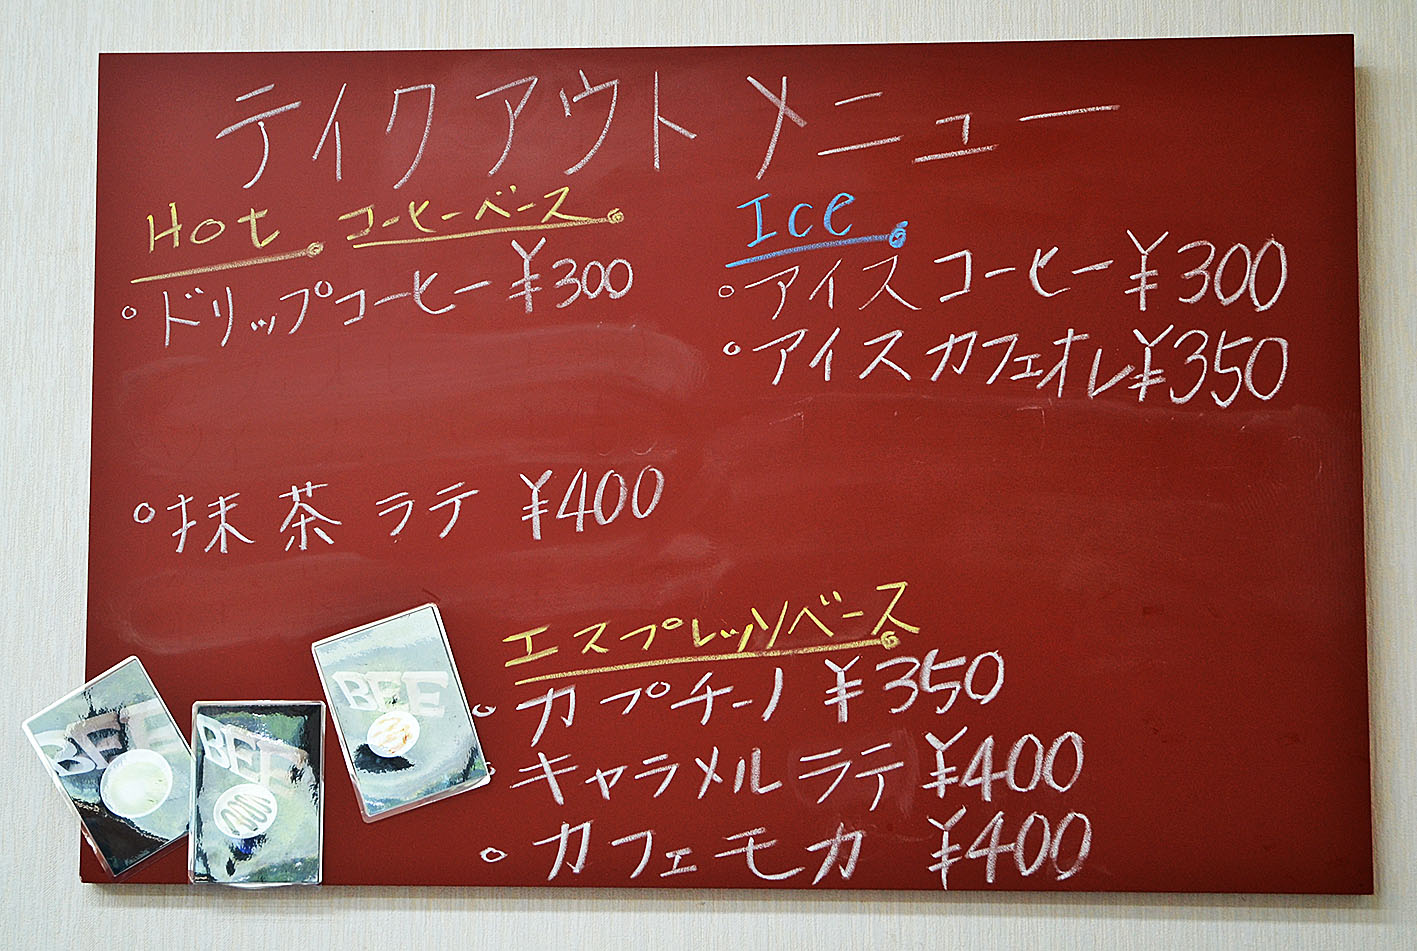 テイクアウトメニュー
Hot コーヒーベース
○ドリップコーヒー ¥300
○抹茶ラテ ¥400
Ice
○アイスコーヒー ¥300
○アイスカフェオレ ¥350
エスプレッソベース
○カプチーノ ¥350
○キャラメルラテ ¥400
○カフェモカ ¥400
BEE
BEE
BEE